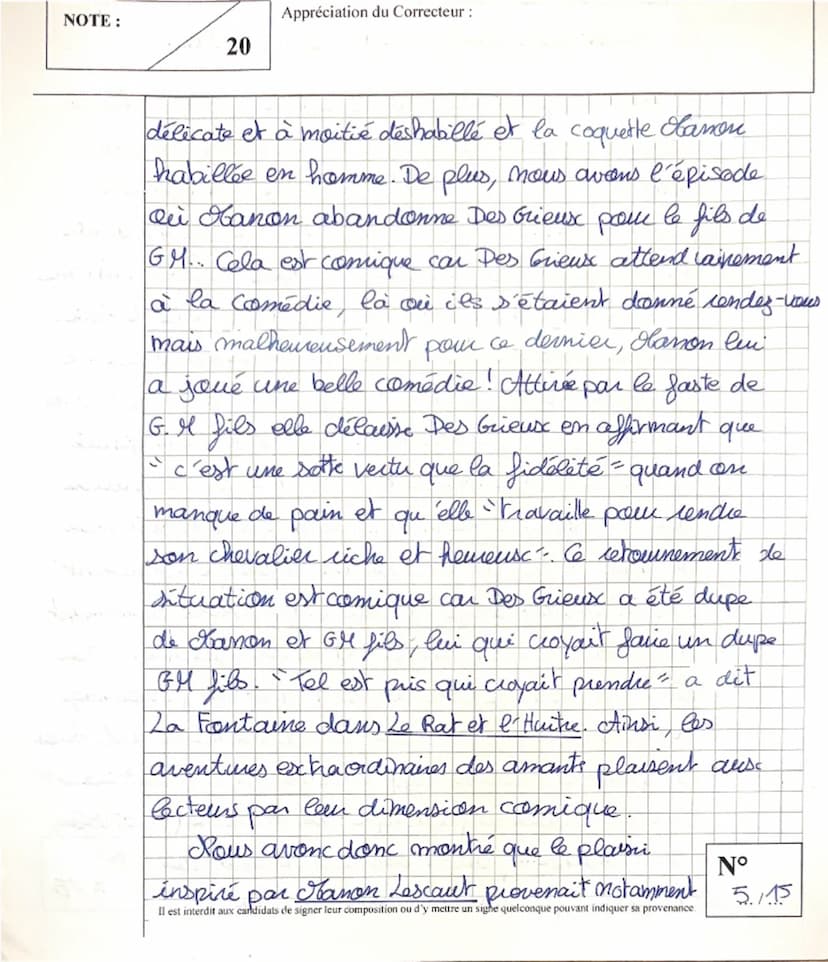 NOTE :
20
Appréciation du Correcteur :
délicate et à moitié déshabillé et la coquette Manon
habillée en homme. De plus, nous avons l'épisode
où Manon abandonne Des Grieux pour le fils de
G M... Cela est comique car Des Grieux attend vainement
à la Comédie, là où ils s'étaient donné rendez-vous
mais malheureusement pour ce dernier, Manon lui
a joué une belle comédie ! Attirée par le faste de
G. M fils elle délaisse Des Grieux en affirmant que
" c'est une sotte vertu que la fidélité " quand on
manque de pain et qu'elle " travaille pour rendre
son chevalier riche et heureux ". Ce retournement de
situation est comique car Des Grieux a été dupe
de Manon et GM fils, lui qui croyait faire un dupe
GM fils. " Tel est pris qui croyait prendre " a dit
La Fontaine dans Le Rat et l'Huitre. Ainsi, les
aventures extraordinaires des amants plaisent aux
lecteurs par leur dimension comique.
Nous avons donc montré que le plaisir
inspiré par Manon Lescaut provenait notamment
Il est interdit aux candidats de signer leur composition ou d'y mettre un signe quelconque pouvant indiquer sa provenance
N°
5./.15